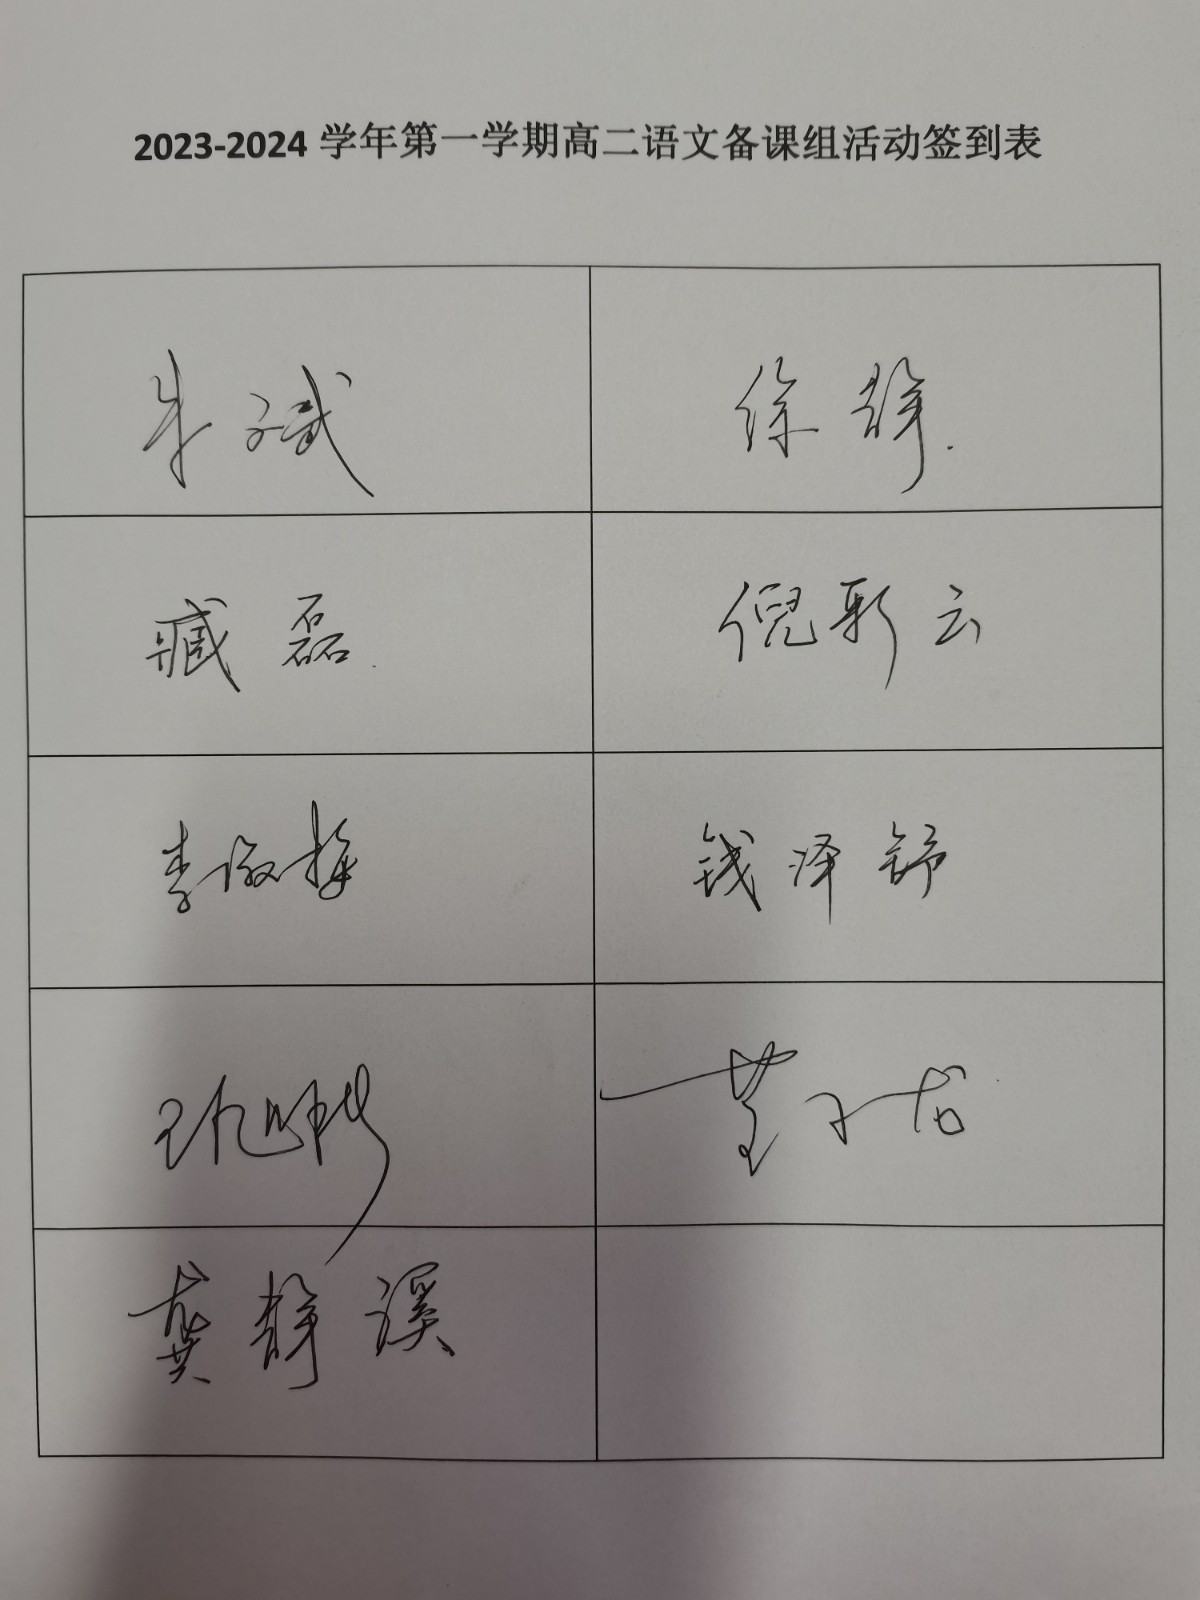 2023-2024 学年第一学期高二语文备课组活动签到表
朱斌 徐静.
臧磊. 倪彩云
李微梅 钱泽舒
龚静溪